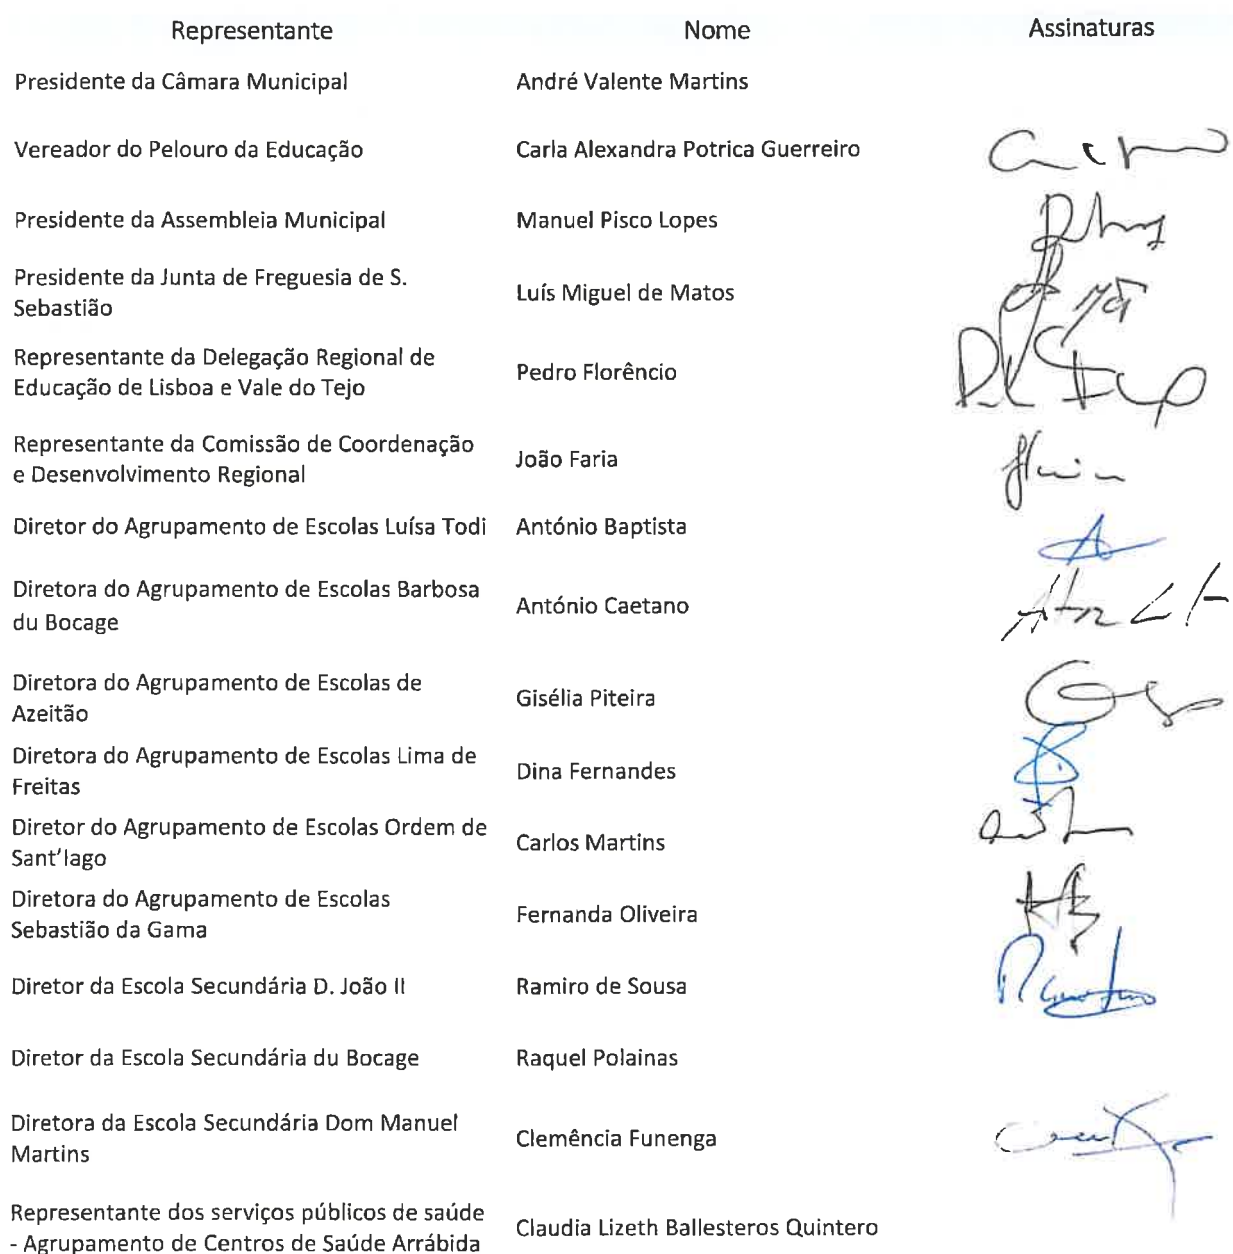 Representante Nome Assinaturas
Presidente da Câmara Municipal André Valente Martins
Vereador do Pelouro da Educação Carla Alexandra Potrica Guerreiro
Presidente da Assembleia Municipal Manuel Pisco Lopes
Presidente da Junta de Freguesia de S.
Sebastião
Luís Miguel de Matos
Representante da Delegação Regional de
Educação de Lisboa e Vale do Tejo
Pedro Florêncio
Representante da Comissão de Coordenação
e Desenvolvimento Regional
João Faria
Diretor do Agrupamento de Escolas Luísa Todi António Baptista
Diretora do Agrupamento de Escolas Barbosa
du Bocage
António Caetano
Diretora do Agrupamento de Escolas de
Azeitão
Gisélia Piteira
Diretora do Agrupamento de Escolas Lima de
Freitas
Dina Fernandes
Diretor do Agrupamento de Escolas Ordem de
Sant'Iago
Carlos Martins
Diretora do Agrupamento de Escolas
Sebastião da Gama
Fernanda Oliveira
Diretor da Escola Secundária D. João II Ramiro de Sousa
Diretor da Escola Secundária du Bocage Raquel Polainas
Diretora da Escola Secundária Dom Manuel
Martins
Clemência Funenga
Representante dos serviços públicos de saúde
- Agrupamento de Centros de Saúde Arrábida
Claudia Lizeth Ballesteros Quintero